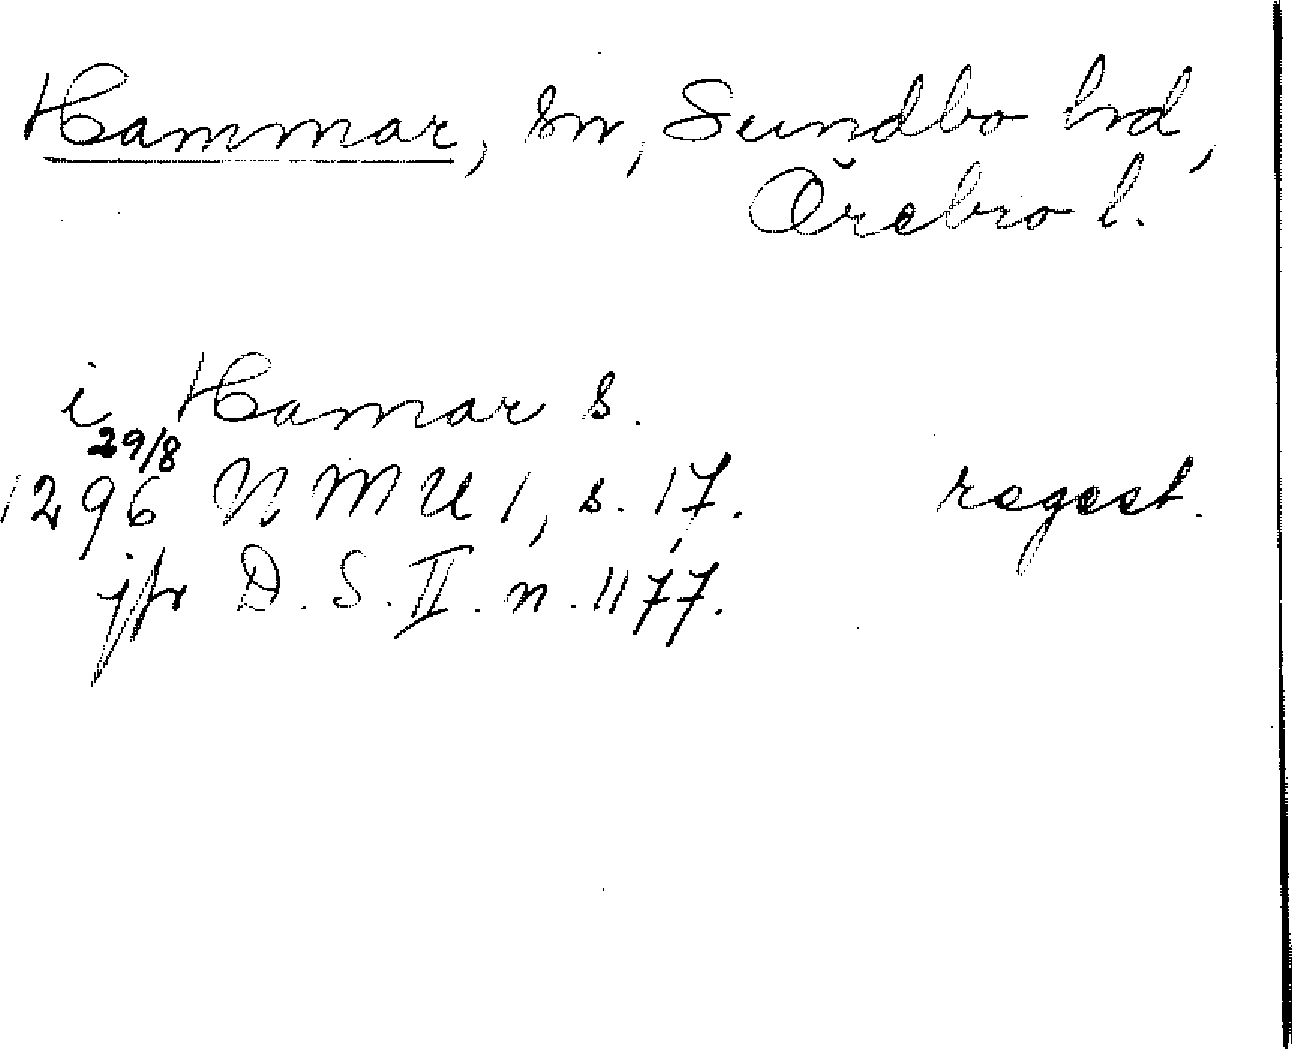 Hammar, sn, Sundbo hrd,
Örebro l.
i Hamar s.
29/8
1296 NMU 1, s. 17. regest.
jfr D. S. II. n. 1177.